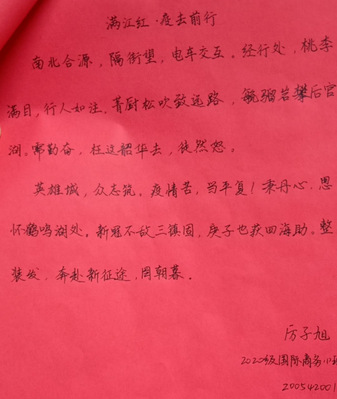 满江红·疫去前行
南北合源，隔街望，电车交互。经行处，桃李
满目，行人如注。青尉松吹致远路，毓秀岩攀后官
湖。需勤奋，枉这韶华去，徒然怒。
英雄城，众志筑，疫情苦，当平复！秉丹心，思
怀鹤鸣湖处。新冠不敌三镇固，庚子也获四海助。整
装发，奔赴新征途，罔朝暮。
厉子旭
2020级国际商务小班
200542001